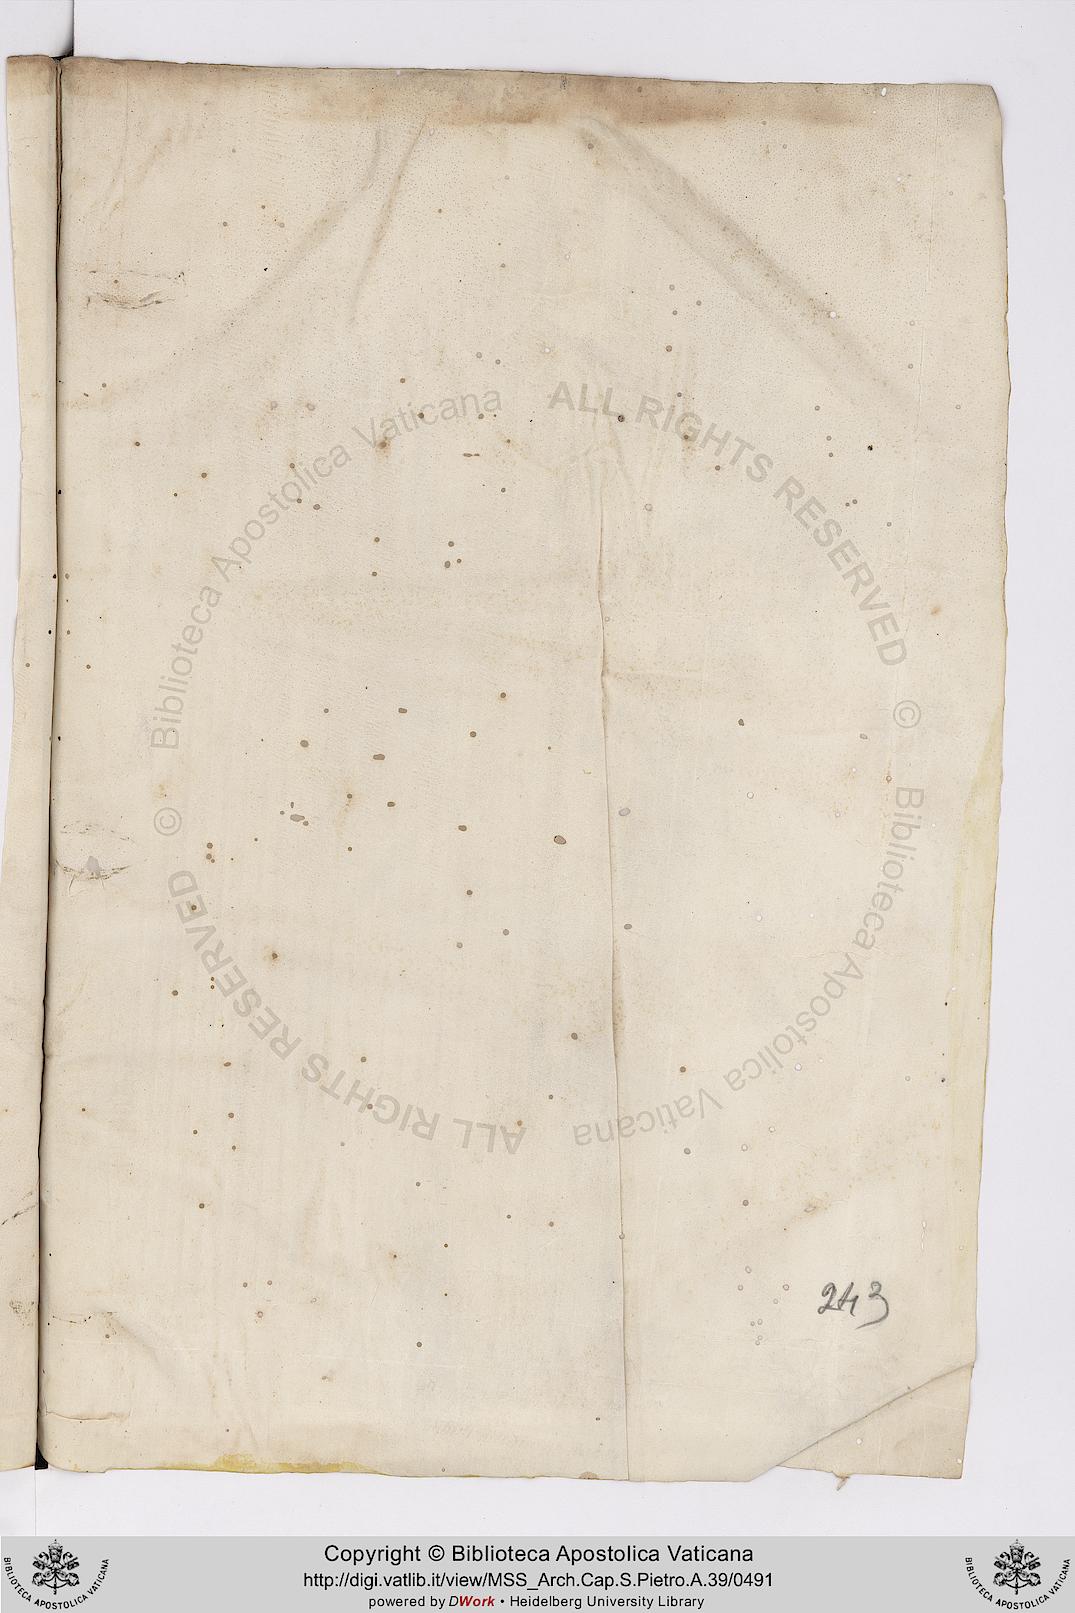 Biblioteca Apostolica Vaticana
ALL RIGHTS RESERVED
©
Biblioteca Apostolica Vaticana
ALL RIGHTS RESERVED
©
243
Copyright © Biblioteca Apostolica Vaticana
http://digi.vatlib.it/view/MSS_Arch.Cap.S.Pietro.A.39/0491
powered by DWork • Heidelberg University Library
BIBLIOTECA APOSTOLICA VATICANA
BIBLIOTECA APOSTOLICA VATICANA